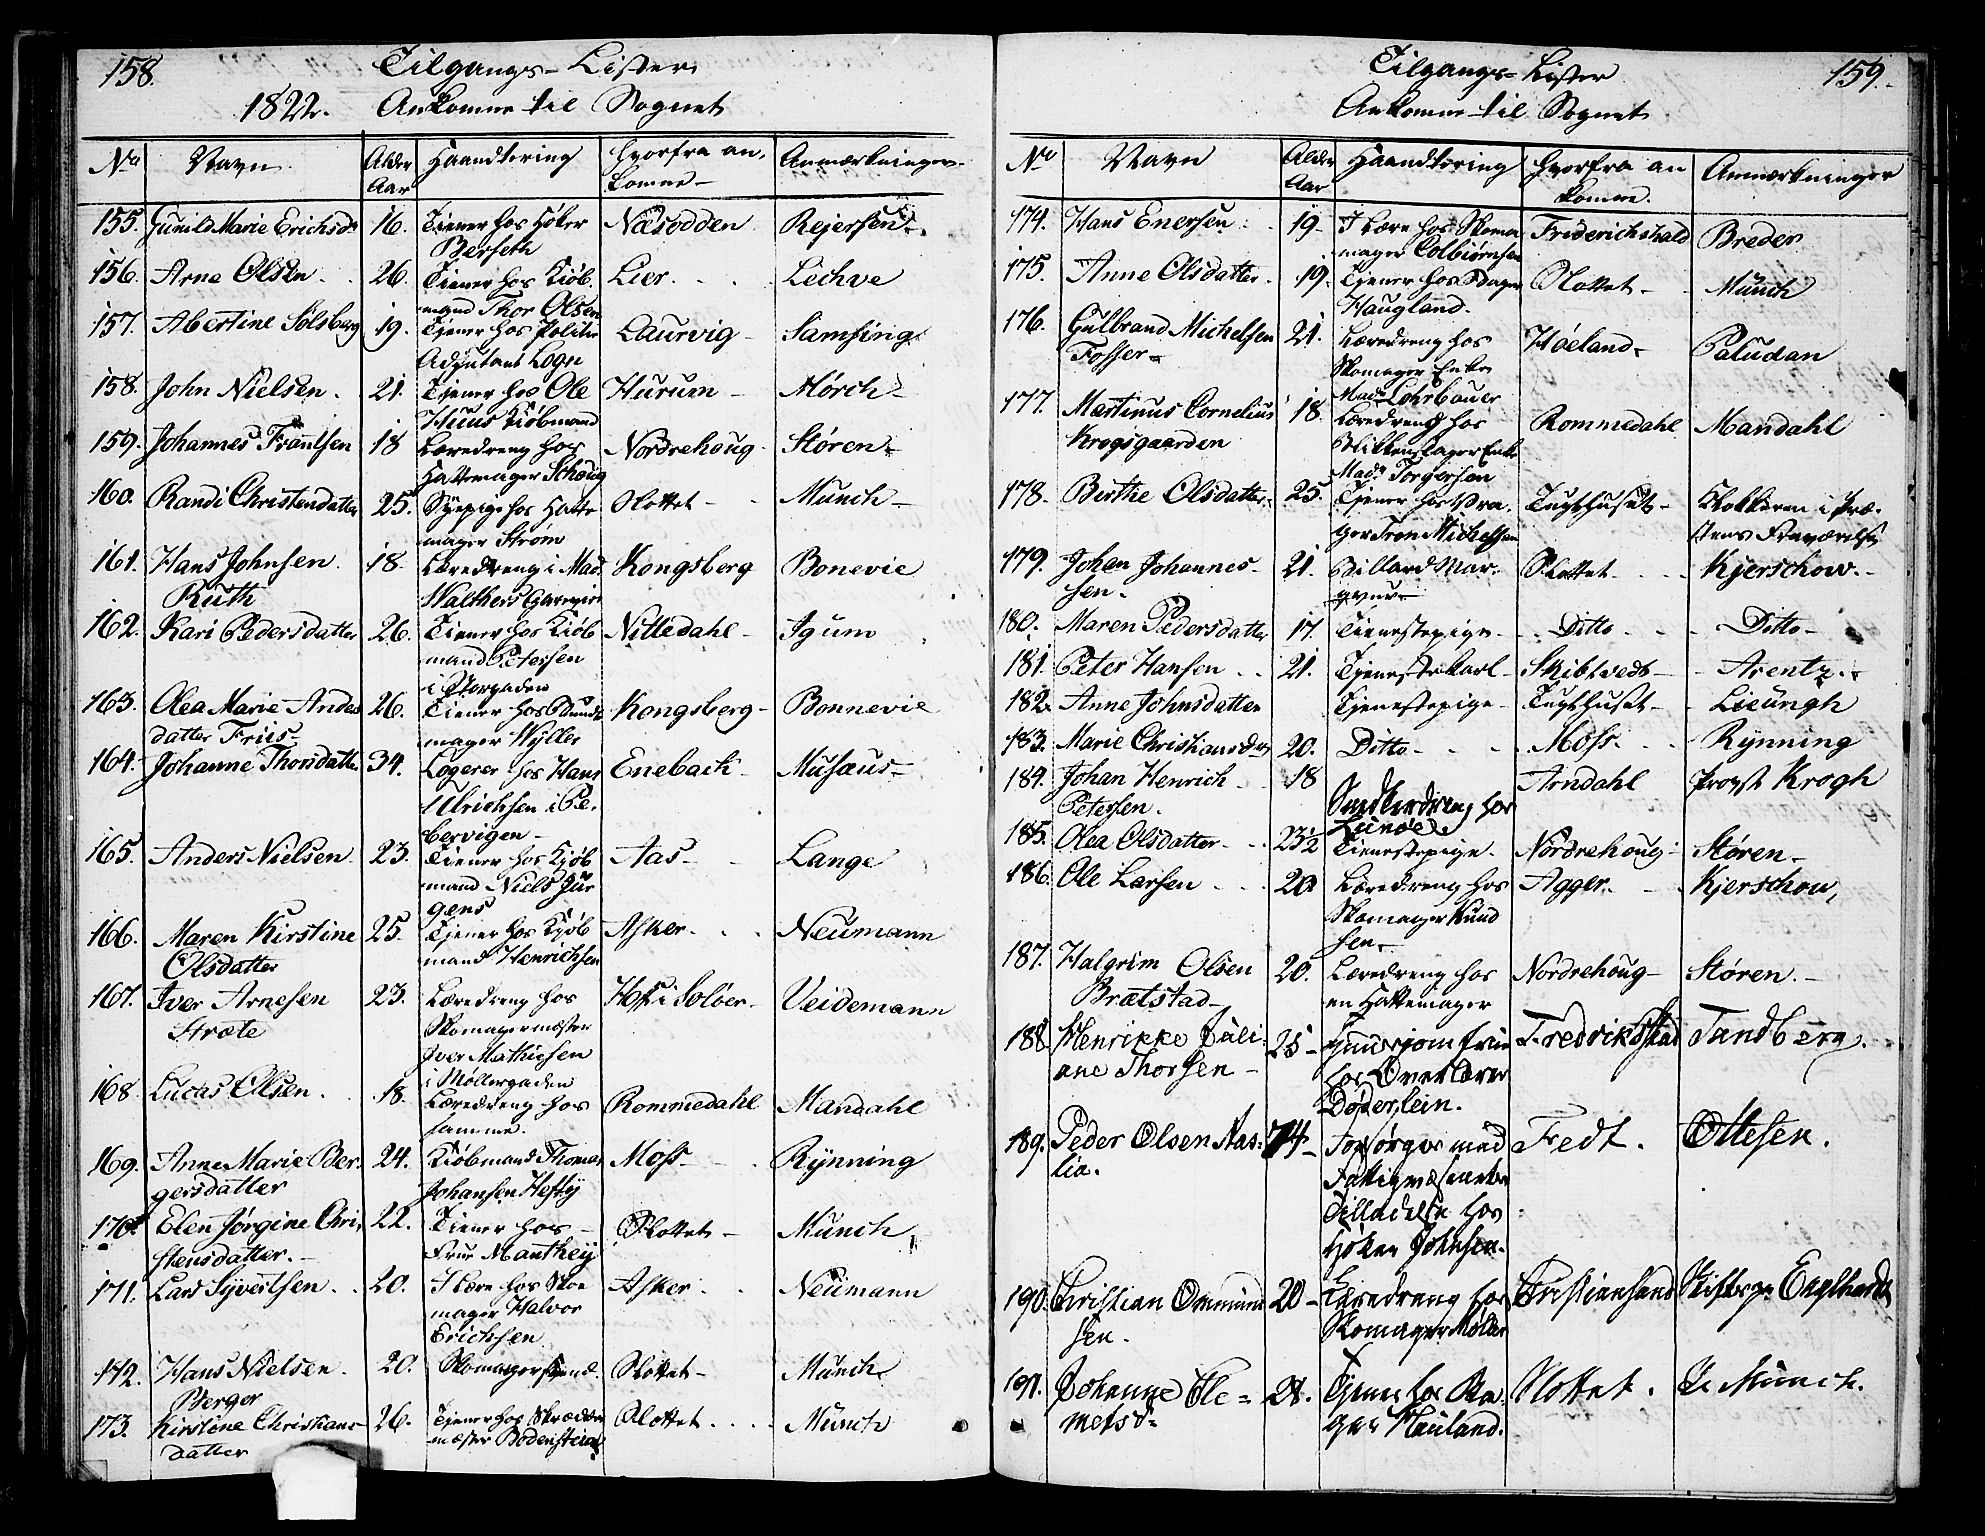 158.
Tilgangs-Lister
1822. Ankomne til Sognet
No Navn Alder Aar Haandtering Hvorfra an- komne- Anmærkninger
155. Gunild Marie Erichsd. 16. Tiener hos Høker Berseth Næsodden Rejersen
156. Arne Olsen 26. Tiener hos Kiøb mand Thor Olsen Lier Lechve
157. Abertine Solsberg 19. Tjener hos Politie Adjutant Logn Laurvig Samsing
158. John Nielsen 21. Tjener hos Ole Huus Kiøbmand Hurum Mørch
159. Johannes Frantsen 18 Læredreng hos Hattemager Schoug Nordrehoug Støren
160. Randi Christendatter 25. Syepige hos Hatte mager Strøm Slottet Munch
161. Hans Johnsen Ruth 18. Læredreng i Mad. Walthers Kongsberg Bonevie
162. Kari Pedersdatter 26. Tiener hos Kiøb mand Petersen i Storgaden Nittedahl Igum
163. Olea Marie Anders datter Friis 26. Tiener hos mager Wyller Kongsberg Bonnevie
164. Johanne Thorsdatter 34. Logerer hos Hans Ulrichsen i Pi- bervigen Eneback Musæus
165. Anders Nielsen 23. Tiener hos Kjøb mand Niels Jür gens Aas Lange
166. Maren Kirstine Olsdatter 25. Tjener hos Kjøb mand Henrichsen Asker Neumann
167. Iver Arnesen Stræte 23. Læredreng hos Skomagermæster Iver Mathiesen i Møllergaden Hof i Soløer Veidemann
168 Lucas Olsen 18. Læredreng hos samme. Rommedahl Mandahl
169. Anne Marie Ber- gersdatter 24. Kiøbmand Thomas Johansen Hefty Moss Rynning
170. Elen Jørgine Chri- stensdatter 22. Tiener hos Frue Manthey Slottet Münch
171. Lars Syvertsen 20. I Lære hos Sko mager Halvor Erichsen Asker Neümann
172. Hans Nielsen Berger 20. Skomagersvend Slottet Münch
173. Kirstine Christians- datter 26. Tjener hos Skrædder mæster Bodenstein Slottet Münch
159.
Tilgangs-Lister
Ankomne til Sognet
No Navn Alder Aar Haandtering Hvorfra an komne. Anmærkninger
174. Hans Enersen 19 I Lære hos Skoma mager Colbiørnsen Friderichshald Breder
175. Anne Olsdatter 19. Tjener hos Haugland. Slottet Münch
176. Gulbrand Michelsen Fosser 21. Læredreng hos Skomager Enke Mad. Lohrbauer Høeland Paludan
177. Martinus Cornelius Krogsgaarden 18 Læredreng hos Blikkenslager Enke Mad. Torgersen Rommedahl Mandahl
178. Birthe Olsdatter 25. Tjener hos Vra- ger Iren Michelsen Tugthuset Klokkeren i Præ- stens Fraværelse
179. Johan Johannes- sen. 21. Billard Mar- queur Slottet Kjerschow.
180. Maren Pedersdatter 17. Tienestepige Ditto Ditto
181. Peter Hansen 21. Tjenestekarl Skibtvedt Arentz
182. Anne Johnsdatter Tjenestepige Tugthuset Lieungh
183. Marie Christiansdr 20. Ditto Moss Rynning
184. Johan Henrich Petersen. 18 Snedkerdreng hos Lunøe Arndahl Provst Krogh
185. Olea Olsdatter 23½ Tienestepige Nordrehoug Støren
186. Ole Larsen 20 Læredreng hos Skomager Knud sen Agger Kjerschow,
187. Halgrim Olsen Brætstad 20. Læredreng hos en Hattemager Nordrehoug Støren
188. Henrikke Juli- ane Thorsen 25 Huusjomfrue hos Overlærer Døderlein. Fredrikstad Tandberg.
189. Peder Olsen Aas- lia. 74 Forsørges med Fattigvæsenets Tilladelse hos Høker Johnsen. Fedt. Ottesen.
190. Christian Ommund sen. 20 Læredreng hos Skomager Møller Christiansand Stiftspr. Engelhardt
191. Johanne Kle- metsd. 28. Tjener hos Ba- ger Hauland. Slottet. Münch.